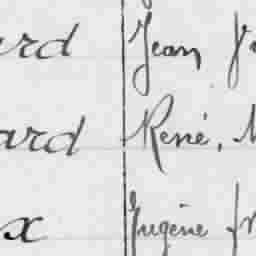 ard Jean
ard René,
x Eugène